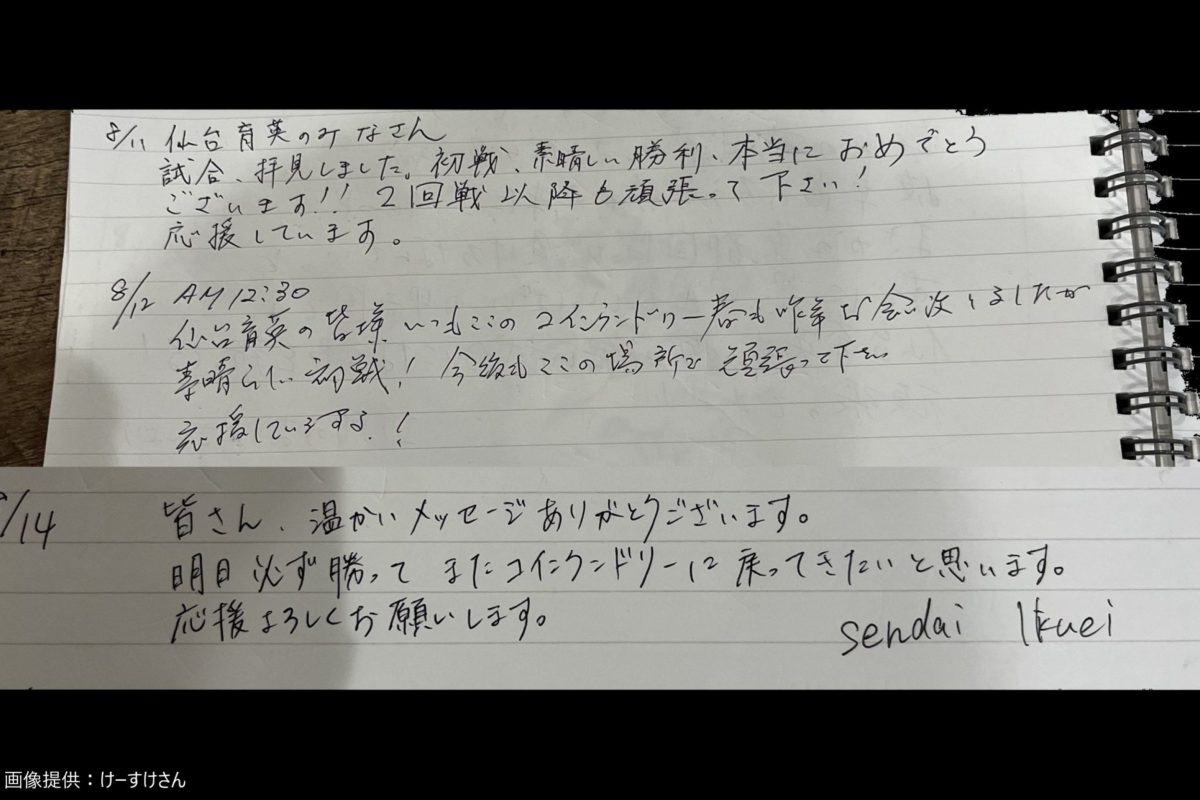 8/11 仙台育英のみなさん
試合、拝見しました。初戦、素晴しい勝利、本当におめでとう
ございます!! 2回戦以降も頑張って下さい!
応援しています。
8/12 AM12:30
仙台育英の皆様 いつもここのコインランドリー春も昨年も
素晴らしい初戦! 今後もここの場所で頑張って下さい
応援しています!
/14 皆さん、温かいメッセージありがとうございます。
明日必ず勝ってまたコインランドリーに戻ってきたいと思います。
応援よろしくお願いします。
sendai Ikuei
画像提供:けーすけさん